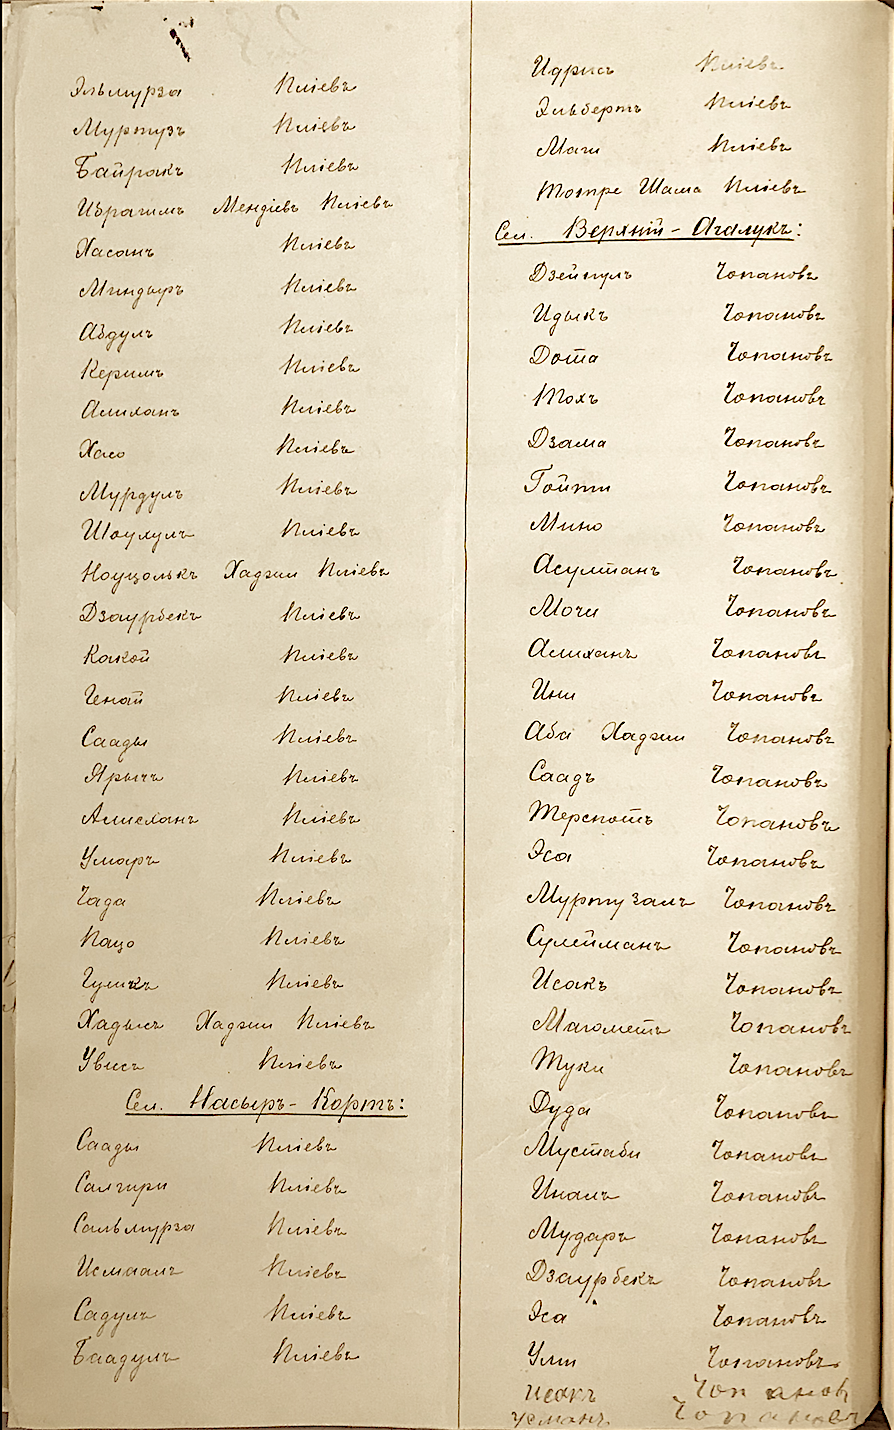 Эльмурза Плiевъ
Муртузъ Плiевъ
Байракъ Плiевъ
Ибрагимъ Мендiевъ Плiевъ
Хасанъ Плiевъ
Миндыръ Плiевъ
Абдулъ Плiевъ
Керимъ Плiевъ
Алиханъ Плiевъ
Хасо Плiевъ
Мурдулъ Плiевъ
Шаухулъ Плiевъ
Ноуцолькъ Хаджи Плiевъ
Дзаурбекъ Плiевъ
Какой Плiевъ
Ченай Плiевъ
Саады Плiевъ
Ярычъ Плiевъ
Алисханъ Плiевъ
Умаръ Плiевъ
Чада Плiевъ
Пацо Плiевъ
Гушкъ Плiевъ
Хадысъ Хаджи Плiевъ
Увисъ Плiевъ
Сел. Насыръ-Кортъ:
Саады Плiевъ
Салгири Плiевъ
Сальмурза Плiевъ
Исмаалъ Плiевъ
Садулъ Плiевъ
Баадулъ Плiевъ
Идрисъ Плiевъ
Эльбертъ Плiевъ
Маги Плiевъ
Тотре Шама Плiевъ
Сел. Верхнiй-Ачалукъ:
Дзейпулъ Чопановъ
Идыкъ Чопановъ
Доша Чопановъ
Тохъ Чопановъ
Дзама Чопановъ
Гойти Чопановъ
Мино Чопановъ
Асултанъ Чопановъ
Мочи Чопановъ
Алиханъ Чопановъ
Ини Чопановъ
Аби Хаджи Чопановъ
Саадъ Чопановъ
Терспотъ Чопановъ
Эса Чопановъ
Муртузалъ Чопановъ
Сулейманъ Чопановъ
Исакъ Чопановъ
Магометъ Чопановъ
Туки Чопановъ
Дуда Чопановъ
Мустаби Чопановъ
Иналъ Чопановъ
Мударъ Чопановъ
Дзаурбекъ Чопановъ
Эса Чопановъ
Уми Чопановъ
Исакъ Чопановъ
Усманъ Чопановъ